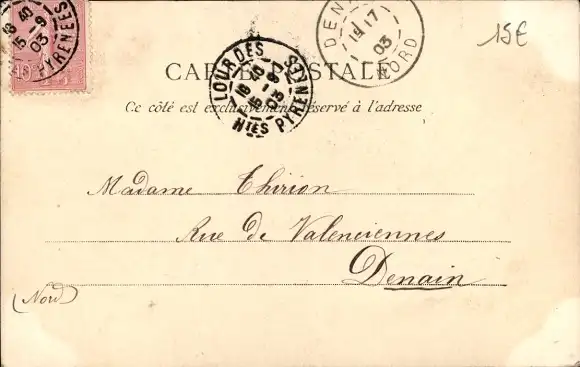 18 40
15 -9
03
PYRENEES
10
LOURDES
18 40
15 -9
03
Htes PYRENEES
DEN
19 17
03
NORD
15€
CARTE POSTALE
Ce côté est exclusivement réservé à l'adresse
Madame Thirion
Rue de Valenciennes
Denain
(Nord)